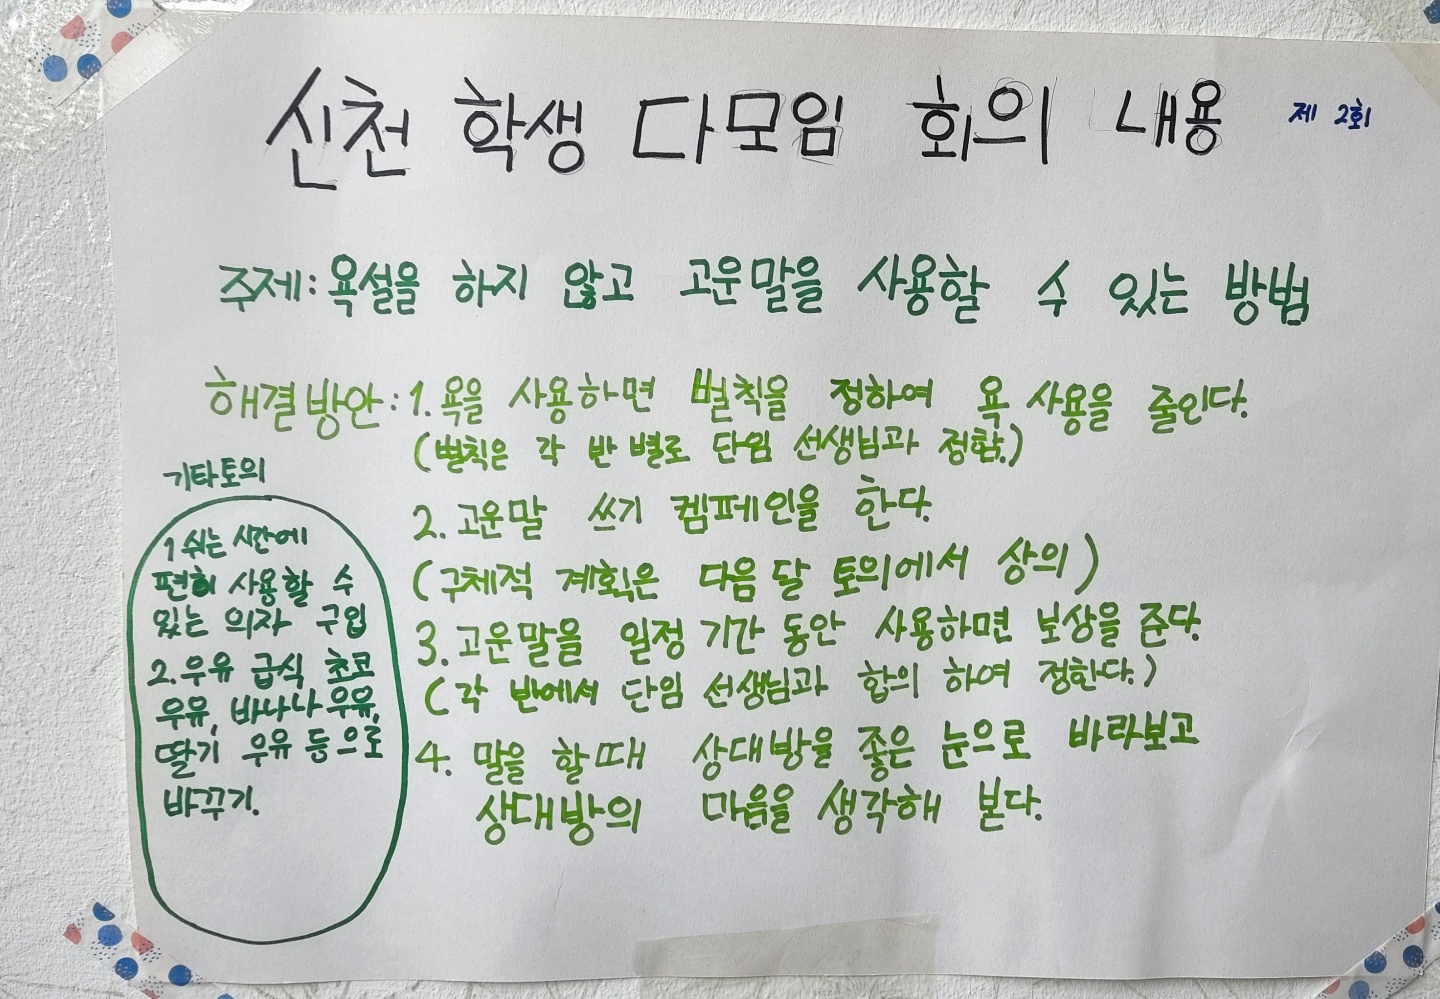 신천 학생 다모임 회의 내용 제 2회
주제: 욕설을 하지 않고 고운말을 사용할 수 있는 방법
해결방안: 1. 욕을 사용하면 벌칙을 정하여 욕 사용을 줄인다.
(벌칙은 각 반 별로 단임 선생님과 정함.)
2. 고운말 쓰기 켐페인을 한다.
(구체적 계획은 다음 달 토의에서 상의)
3. 고운말을 일정 기간 동안 사용하면 보상을 준다.
(각 반에서 단임 선생님과 합의 하여 정한다.)
4. 말을 할때 상대방을 좋은 눈으로 바라보고
상대방의 마음을 생각해 본다.
기타토의
1 쉬는 시간에
편히 사용할 수
있는 의자 구입
2. 우유 급식 초코
우유, 바나나 우유,
딸기 우유 등으로
바꾸기.